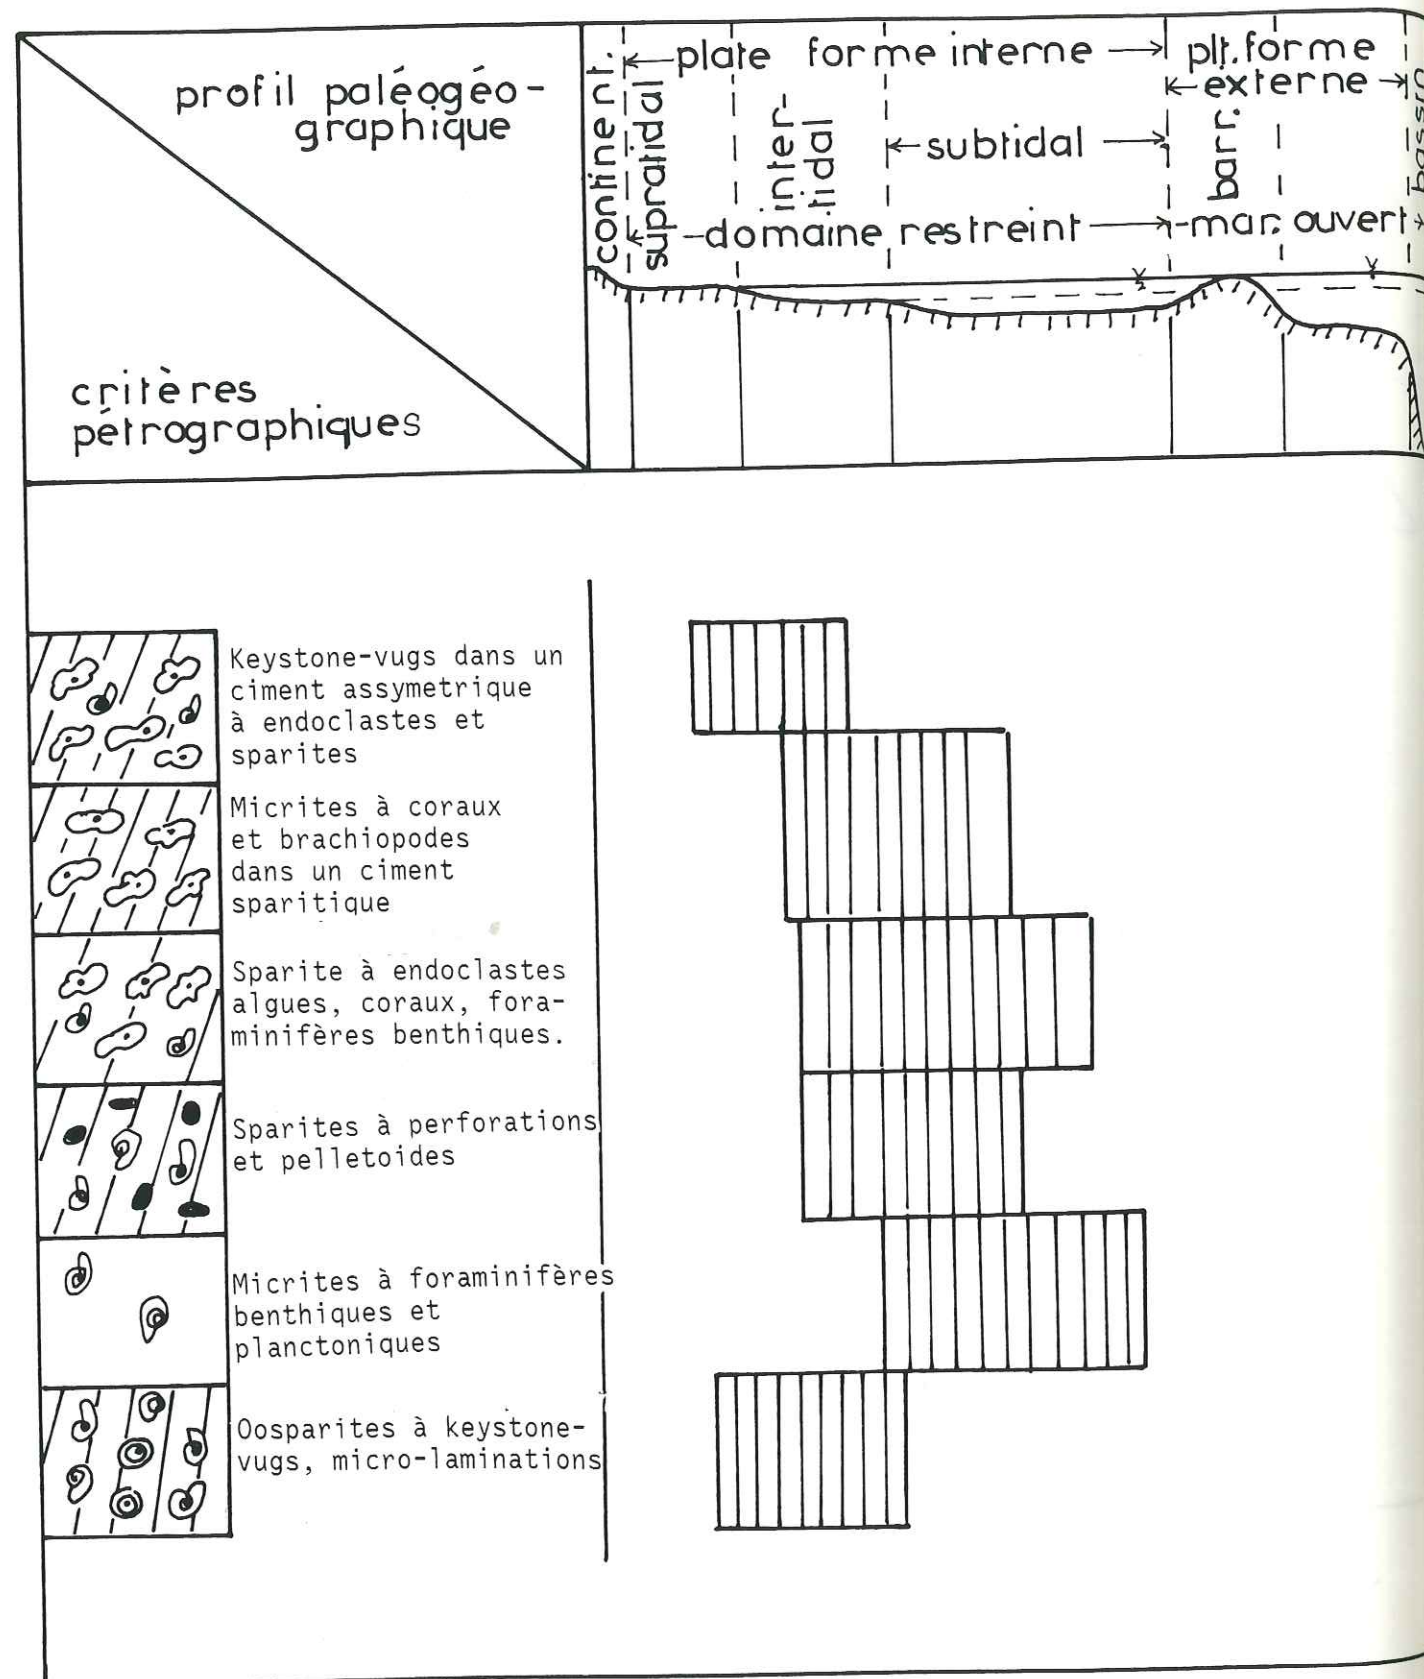 profil paléogéo-
graphique
critères
pétrographiques
continent.
supratidal
plate forme interne
inter-
tidal
subtidal
domaine restreint
plt.forme
externe
barr.
mar. ouvert
Keystone-vugs dans un
ciment assymetrique
à endoclastes et
sparites
Micrites à coraux
et brachiopodes
dans un ciment
sparitique
Sparite à endoclastes
algues, coraux, fora-
minifères benthiques.
Sparites à perforations
et pelletoides
Micrites à foraminifères
benthiques et
planctoniques
Oosparites à keystone-
vugs, micro-laminations